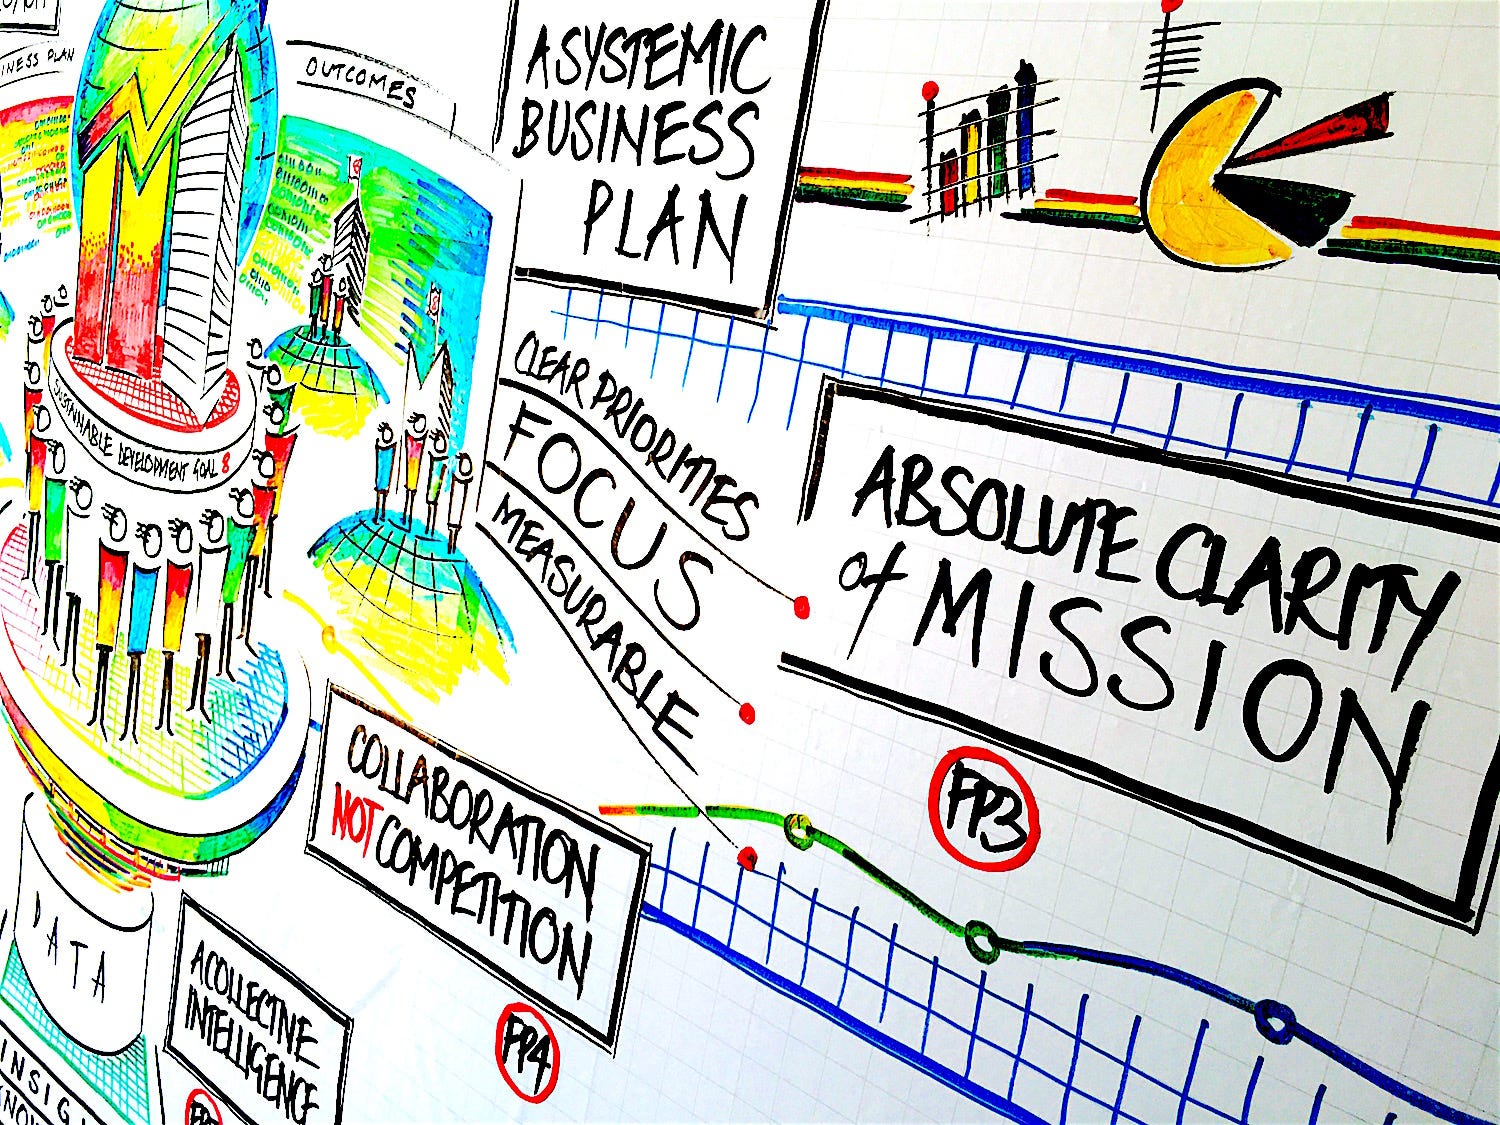 OUTCOMES
A SYSTEMIC
BUSINESS
PLAN
INESS PLAN
CLEAR PRIORITIES
FOCUS
MEASURABLE
ABSOLUTE CLARITY
of MISSION
FP3
SUSTAINABLE DEVELOPMENT GOAL 8
COLLABORATION
NOT COMPETITION
FP4
DATA
A COLLECTIVE
INTELLIGENCE
INSIG
KNOW